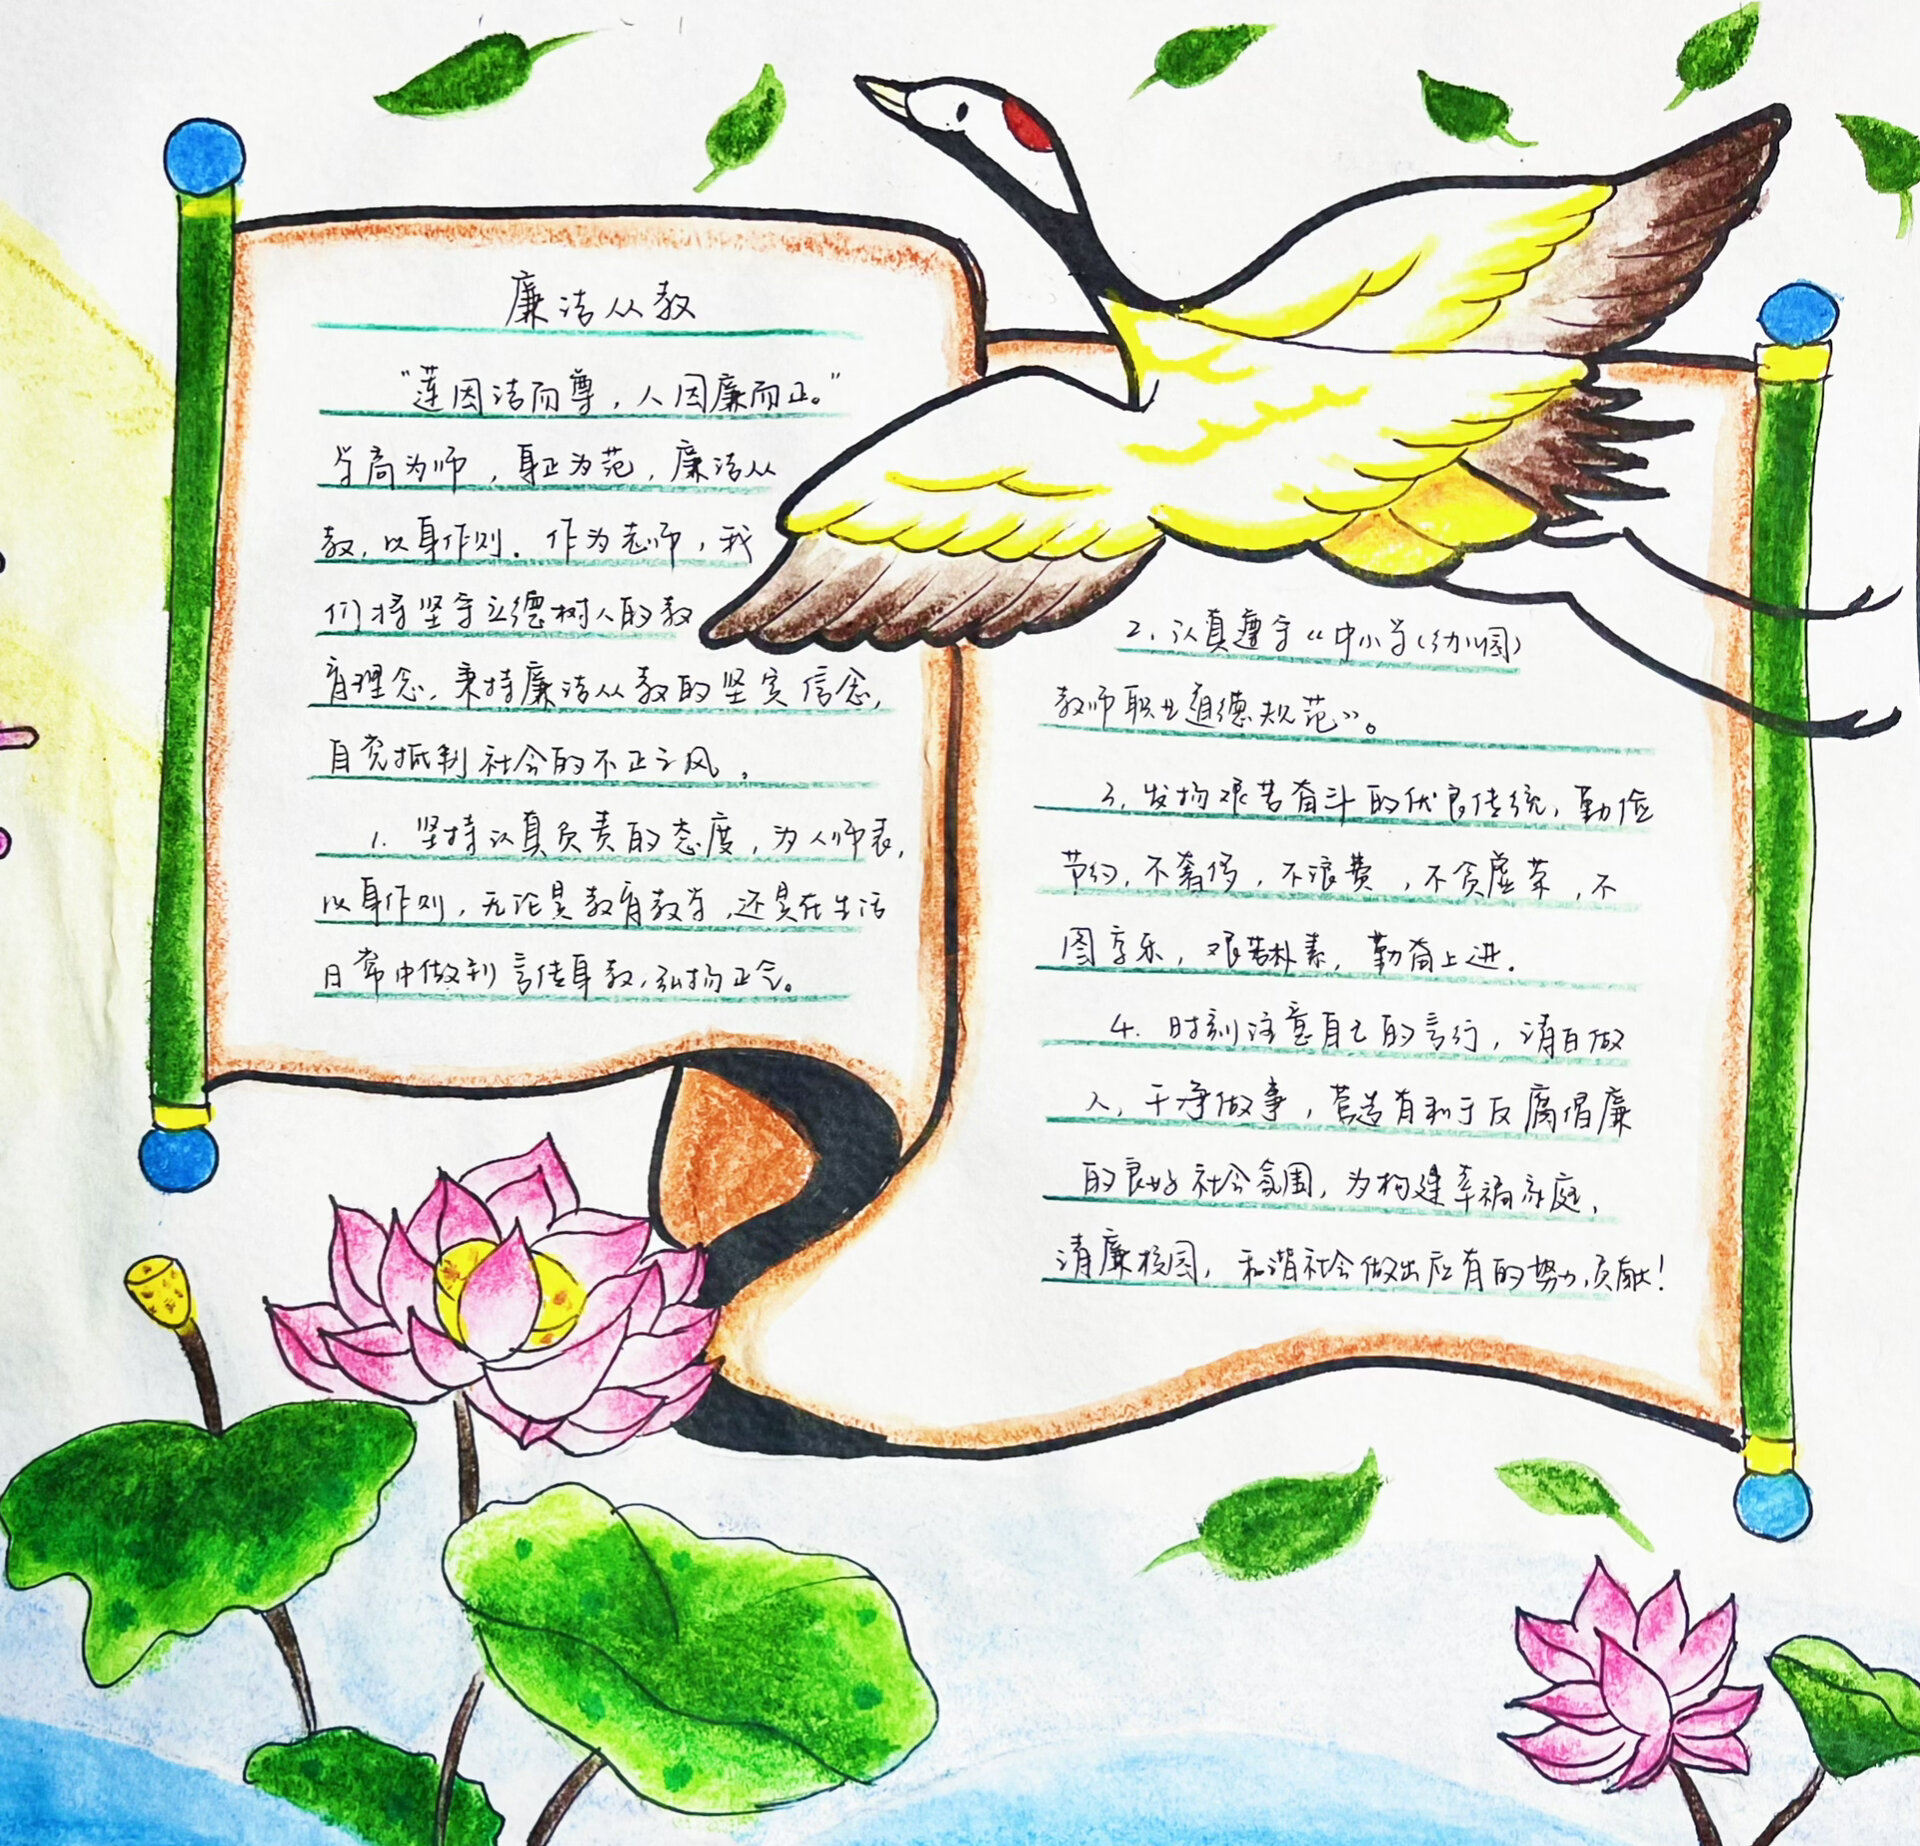 廉洁从教
“莲因洁而尊，人因廉而正。”
学高为师，身正为范，廉洁从
教，以身作则．作为老师，我
们将坚守立德树人的教
育理念，秉持廉洁从教的坚定信念，
自觉抵制社会的不正之风。
1. 坚持认真负责的态度，为人师表，
以身作则，无论是教育教学，还是在生活
日常中做到言传身教，弘扬正念。
2. 认真遵守《中小学（幼儿园）
教师职业道德规范》。
3. 发扬艰苦奋斗的优良传统，勤俭
节约，不奢侈，不浪费，不贪虚荣，不
图享乐，艰苦朴素，勤奋上进．
4. 时刻注意自己的言行，清白做
人，干净做事，营造有利于反腐倡廉
的良好社会氛围，为构建幸福家庭，
清廉校园，和谐社会做出应有的努力，贡献！